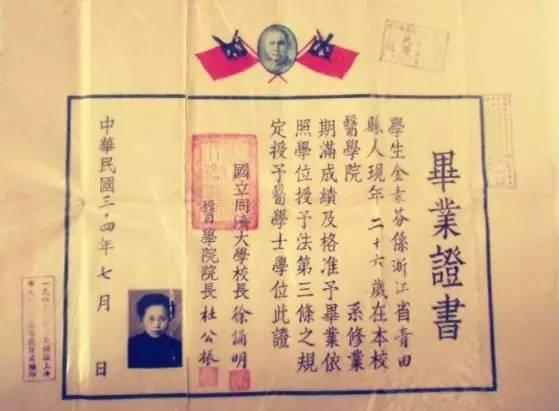 畢業證書
學生金素芬係浙江省青田
縣人現年二十六歲在本校
醫學院　　　系修業
期滿成績及格准予畢業依
照學位授予法第三條之規
定授予醫學士學位此證
國立同濟大學校長徐誦明
醫學院院長杜公振
中華民國三十四年七月　日